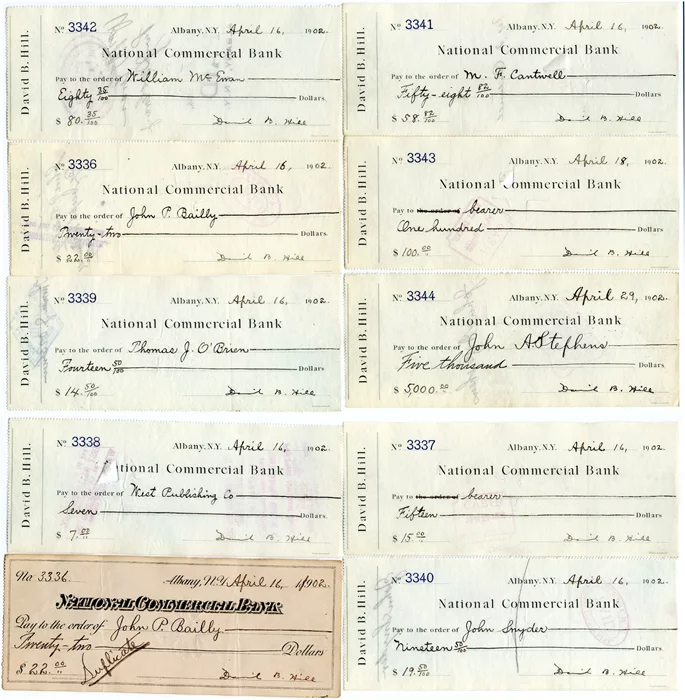 David B. Hill.
No 3342 Albany, N.Y. April 16, 1902.
National Commercial Bank
Pay to the order of William McEwan
Eighty 35/100 Dollars
$ 80. 35/100 David B. Hill
David B. Hill.
No 3341 Albany, N.Y. April 16, 1902.
National Commercial Bank
Pay to the order of M. F. Cantwell
Fifty-eight 82/100 Dollars.
$ 58. 82/100 David B. Hill
David B. Hill.
No 3336 Albany, N.Y. April 16, 1902
National Commercial Bank
Pay to the order of John P. Bailly
Twenty-two Dollars
$ 22. 00 David B. Hill
David B. Hill.
No 3343 Albany, N.Y. April 18, 1902.
National Commercial Bank
Pay to the order of bearer
One hundred Dollars.
$ 100. 00 David B. Hill
David B. Hill.
No 3339 Albany, N.Y. April 16, 1902.
National Commercial Bank
Pay to the order of Thomas J. O'Brien
Fourteen 50/100 Dollars.
$ 14. 50/100 David B. Hill
David B. Hill.
No 3344 Albany, N.Y. April 29, 1902.
National Commercial Bank
Pay to the order of John A Stephens
Five thousand Dollars.
$ 5000. 00 David B. Hill
David B. Hill.
No 3338 Albany, N.Y. April 16, 1902.
tional Commercial Bank
Pay to the order of West Publishing Co
Seven Dollars.
$ 7. 00 David B. Hill
David B. Hill.
No 3337 Albany, N.Y. April 16, 1902.
National Commercial Bank
Pay to the order of bearer
Fifteen Dollars.
$ 15. 00 David B. Hill
No 3336. Albany, N.Y. April 16, 1902.
NATIONAL COMMERCIAL BANK
Pay to the order of John P. Bailly
Twenty-two Dollars
Duplicate
$ 22. 00 David B. Hill
David B. Hill.
No 3340 Albany, N.Y. April 16, 1902.
National Commercial Bank
Pay to the order of John Snyder
Nineteen 50/100 Dollars.
$ 19. 50/100 David B. Hill